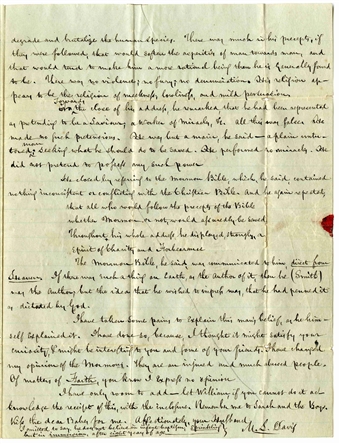 degrade and brutalize the human species. There was much in his precepts, if
they were followed, that would soften the asperities of man towards man, and
that would tend to make him a more rational being than he is generally found
to be. There was no violence; no fury; no denunciation. His religion ap-
pears to be the religion of meekness, lowliness, and mild persuasion.
Towards
the close of his address, he remarked that he had been represented
as pretending to be a Saviour, a worker of miracles, &c. All this was false. He
made no such pretensions. He was but a man, he said — a plain untu-
tored man
seeking what he should do to be saved. He performed no miracles. He
did not pretend to possess any such power
He closed by referring to the Mormon Bible, which he said, contained
nothing inconsistent or conflicting with the Christian Bible, and he again repeated,
that all who would follow the precepts of the Bible
whether Mormon or not, would assuredly be saved.
Throughout his whole address, he displayed strongly, a
spirit of Charity and Forbearance.
The Mormon Bible, he said was communicated to him direct from
Heaven. If there was such a thing on Earth, as the author of it, then he (Smith)
was the Author; but the idea that he wished to impress was, that he had penned it
as dictated by God.
I have taken some pains to explain this man's belief, as he him-
self explained it. I have done so, because, I thought it might satisfy your
curiosity, & might be interesting to you and some of your friends. I have changed
my opinion of the Mormons. They are an injured and much abused people.
Of matters of Faith, you know I express no opinion
I have only room to add — Let William, if you cannot do it ac-
knowledge the receipt of this, with the inclosure. Remember me to Sarah and the Boys.
Kiss the dear Baby for me. Affectionately your Husband,
M. L. Davis